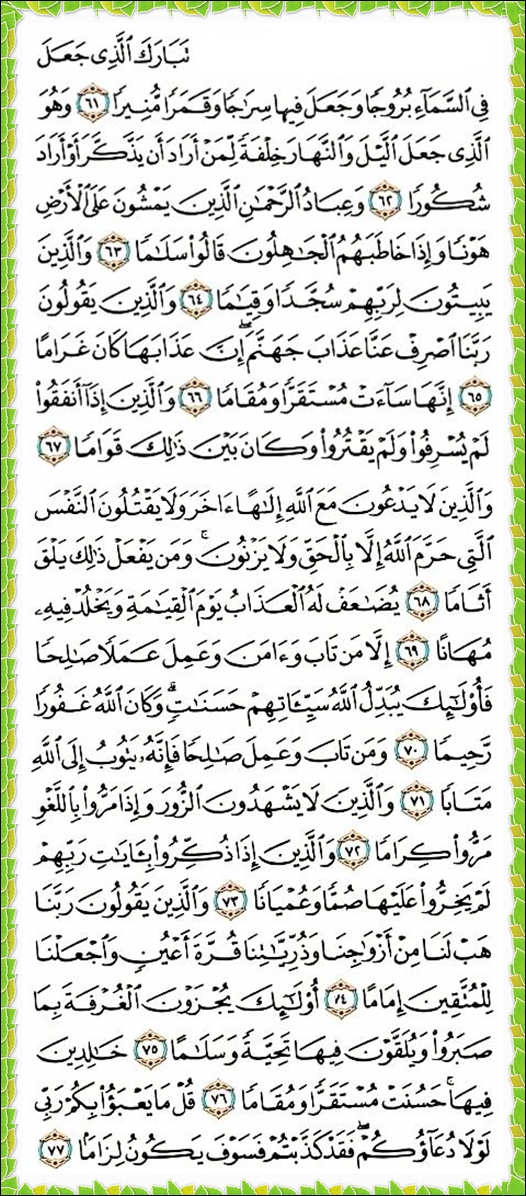 تَبَارَكَ ٱلَّذِي جَعَلَ
فِي ٱلسَّمَآءِ بُرُوجٗا وَجَعَلَ فِيهَا سِرَٰجٗا وَقَمَرٗا مُّنِيرٗا ٦١ وَهُوَ
ٱلَّذِي جَعَلَ ٱلَّيۡلَ وَٱلنَّهَارَ خِلۡفَةٗ لِّمَنۡ أَرَادَ أَن يَذَّكَّرَ أَوۡ أَرَادَ
شُكُورٗا ٦٢ وَعِبَادُ ٱلرَّحۡمَٰنِ ٱلَّذِينَ يَمۡشُونَ عَلَى ٱلۡأَرۡضِ
هَوۡنٗا وَإِذَا خَاطَبَهُمُ ٱلۡجَٰهِلُونَ قَالُواْ سَلَٰمٗا ٦٣ وَٱلَّذِينَ
يَبِيتُونَ لِرَبِّهِمۡ سُجَّدٗا وَقِيَٰمٗا ٦٤ وَٱلَّذِينَ يَقُولُونَ
رَبَّنَا ٱصۡرِفۡ عَنَّا عَذَابَ جَهَنَّمَۖ إِنَّ عَذَابَهَا كَانَ غَرَامًا
٦٥ إِنَّهَا سَآءَتۡ مُسۡتَقَرّٗا وَمُقَامٗا ٦٦ وَٱلَّذِينَ إِذَآ أَنفَقُواْ
لَمۡ يُسۡرِفُواْ وَلَمۡ يَقۡتُرُواْ وَكَانَ بَيۡنَ ذَٰلِكَ قَوَامٗا ٦٧
وَٱلَّذِينَ لَا يَدۡعُونَ مَعَ ٱللَّهِ إِلَٰهًا ءَاخَرَ وَلَا يَقۡتُلُونَ ٱلنَّفۡسَ
ٱلَّتِي حَرَّمَ ٱللَّهُ إِلَّا بِٱلۡحَقِّ وَلَا يَزۡنُونَۚ وَمَن يَفۡعَلۡ ذَٰلِكَ يَلۡقَ
أَثَامٗا ٦٨ يُضَٰعَفۡ لَهُ ٱلۡعَذَابُ يَوۡمَ ٱلۡقِيَٰمَةِ وَيَخۡلُدۡ فِيهِۦ
مُهَانًا ٦٩ إِلَّا مَن تَابَ وَءَامَنَ وَعَمِلَ عَمَلٗا صَٰلِحٗا
فَأُوْلَٰٓئِكَ يُبَدِّلُ ٱللَّهُ سَيِّـَٔاتِهِمۡ حَسَنَٰتٖۗ وَكَانَ ٱللَّهُ غَفُورٗا
رَّحِيمٗا ٧٠ وَمَن تَابَ وَعَمِلَ صَٰلِحٗا فَإِنَّهُۥ يَتُوبُ إِلَى ٱللَّهِ
مَتَابٗا ٧١ وَٱلَّذِينَ لَا يَشۡهَدُونَ ٱلزُّورَ وَإِذَا مَرُّواْ بِٱللَّغۡوِ
مَرُّواْ كِرَامٗا ٧٢ وَٱلَّذِينَ إِذَا ذُكِّرُواْ بِـَٔايَٰتِ رَبِّهِمۡ
لَمۡ يَخِرُّواْ عَلَيۡهَا صُمّٗا وَعُمۡيَانٗا ٧٣ وَٱلَّذِينَ يَقُولُونَ رَبَّنَا
هَبۡ لَنَا مِنۡ أَزۡوَٰجِنَا وَذُرِّيَّٰتِنَا قُرَّةَ أَعۡيُنٖ وَٱجۡعَلۡنَا
لِلۡمُتَّقِينَ إِمَامًا ٧٤ أُوْلَٰٓئِكَ يُجۡزَوۡنَ ٱلۡغُرۡفَةَ بِمَا
صَبَرُواْ وَيُلَقَّوۡنَ فِيهَا تَحِيَّةٗ وَسَلَٰمًا ٧٥ خَٰلِدِينَ
فِيهَاۚ حَسُنَتۡ مُسۡتَقَرّٗا وَمُقَامٗا ٧٦ قُلۡ مَا يَعۡبَؤُاْ بِكُمۡ رَبِّي
لَوۡلَا دُعَآؤُكُمۡۖ فَقَدۡ كَذَّبۡتُمۡ فَسَوۡفَ يَكُونُ لِزَامَۢا ٧٧